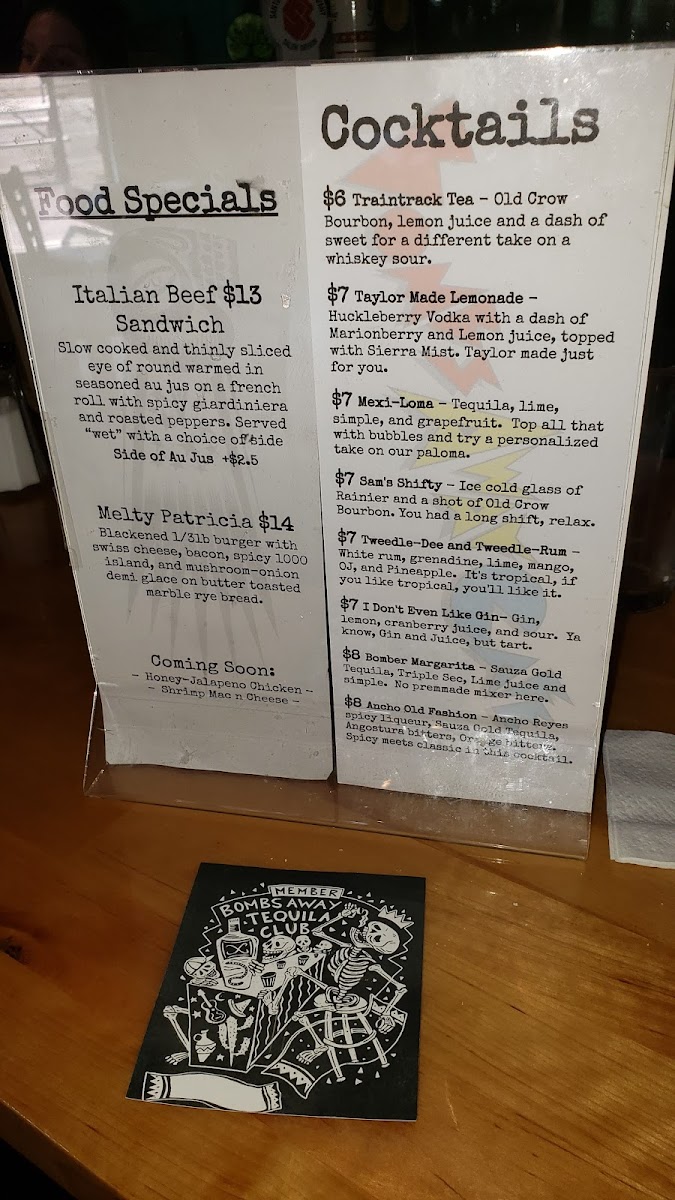 Food Specials
Italian Beef $13
Sandwich
Slow cooked and thinly sliced
eye of round warmed in
seasoned au jus on a french
roll with spicy giardiniera
and roasted peppers. Served
"wet" with a choice of side
Side of Au Jus +$2.5
Melty Patricia $14
Blackened 1/3lb burger with
swiss cheese, bacon, spicy 1000
island, and mushroom-onion
demi glace on butter toasted
marble rye bread.
Coming Soon:
- Honey-Jalapeno Chicken -
- Shrimp Mac n Cheese -
Cocktails
$6 Traintrack Tea - Old Crow
Bourbon, lemon juice and a dash of
sweet for a different take on a
whiskey sour.
$7 Taylor Made Lemonade -
Huckleberry Vodka with a dash of
Marionberry and Lemon juice, topped
with Sierra Mist. Taylor made just
for you.
$7 Mexi-Loma - Tequila, lime,
simple, and grapefruit. Top all that
with bubbles and try a personalized
take on our paloma.
$7 Sam's Shifty - Ice cold glass of
Rainier and a shot of Old Crow
Bourbon. You had a long shift, relax.
$7 Tweedle-Dee and Tweedle-Rum -
White rum, grenadine, lime, mango,
OJ, and Pineapple. It's tropical, if
you like tropical, you'll like it.
$7 I Don't Even Like Gin- Gin,
lemon, cranberry juice, and sour. Ya
know, Gin and Juice, but tart.
$8 Bomber Margarita - Sauza Gold
Tequila, Triple Sec, Lime juice and
simple. No premmade mixer here.
$8 Ancho Old Fashion - Ancho Reyes
spicy liqueur, Sauza Gold Tequila,
Angostura bitters, Orange bitters.
Spicy meets classic in this cocktail.
MEMBER
BOMBS AWAY
TEQUILA
CLUB